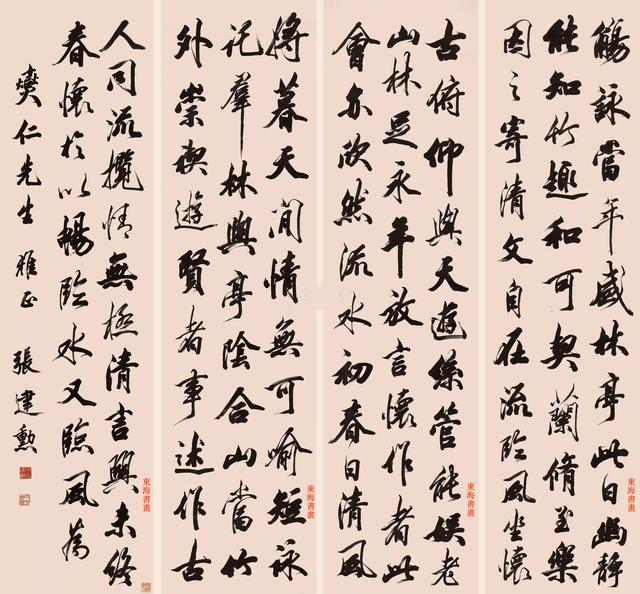 觴詠當年盛林亭此日幽靜
能知竹趣和可契蘭脩至樂
因之寄清文自在流臨風坐懷
古俯仰與天遊絲管能娛老
山林足永年放言懷作者此
會亦欣然流水初春日清風
將暮天閒情無可喻短詠
記群林與亭陰合山當竹
外崇禊遊賢者事述作古
人同流攬情無極清言興未終
春懷於以暢臨水又臨風為
燮仁先生雅正 張建勳
東海書畫
東海書畫
東海書畫
東海書畫